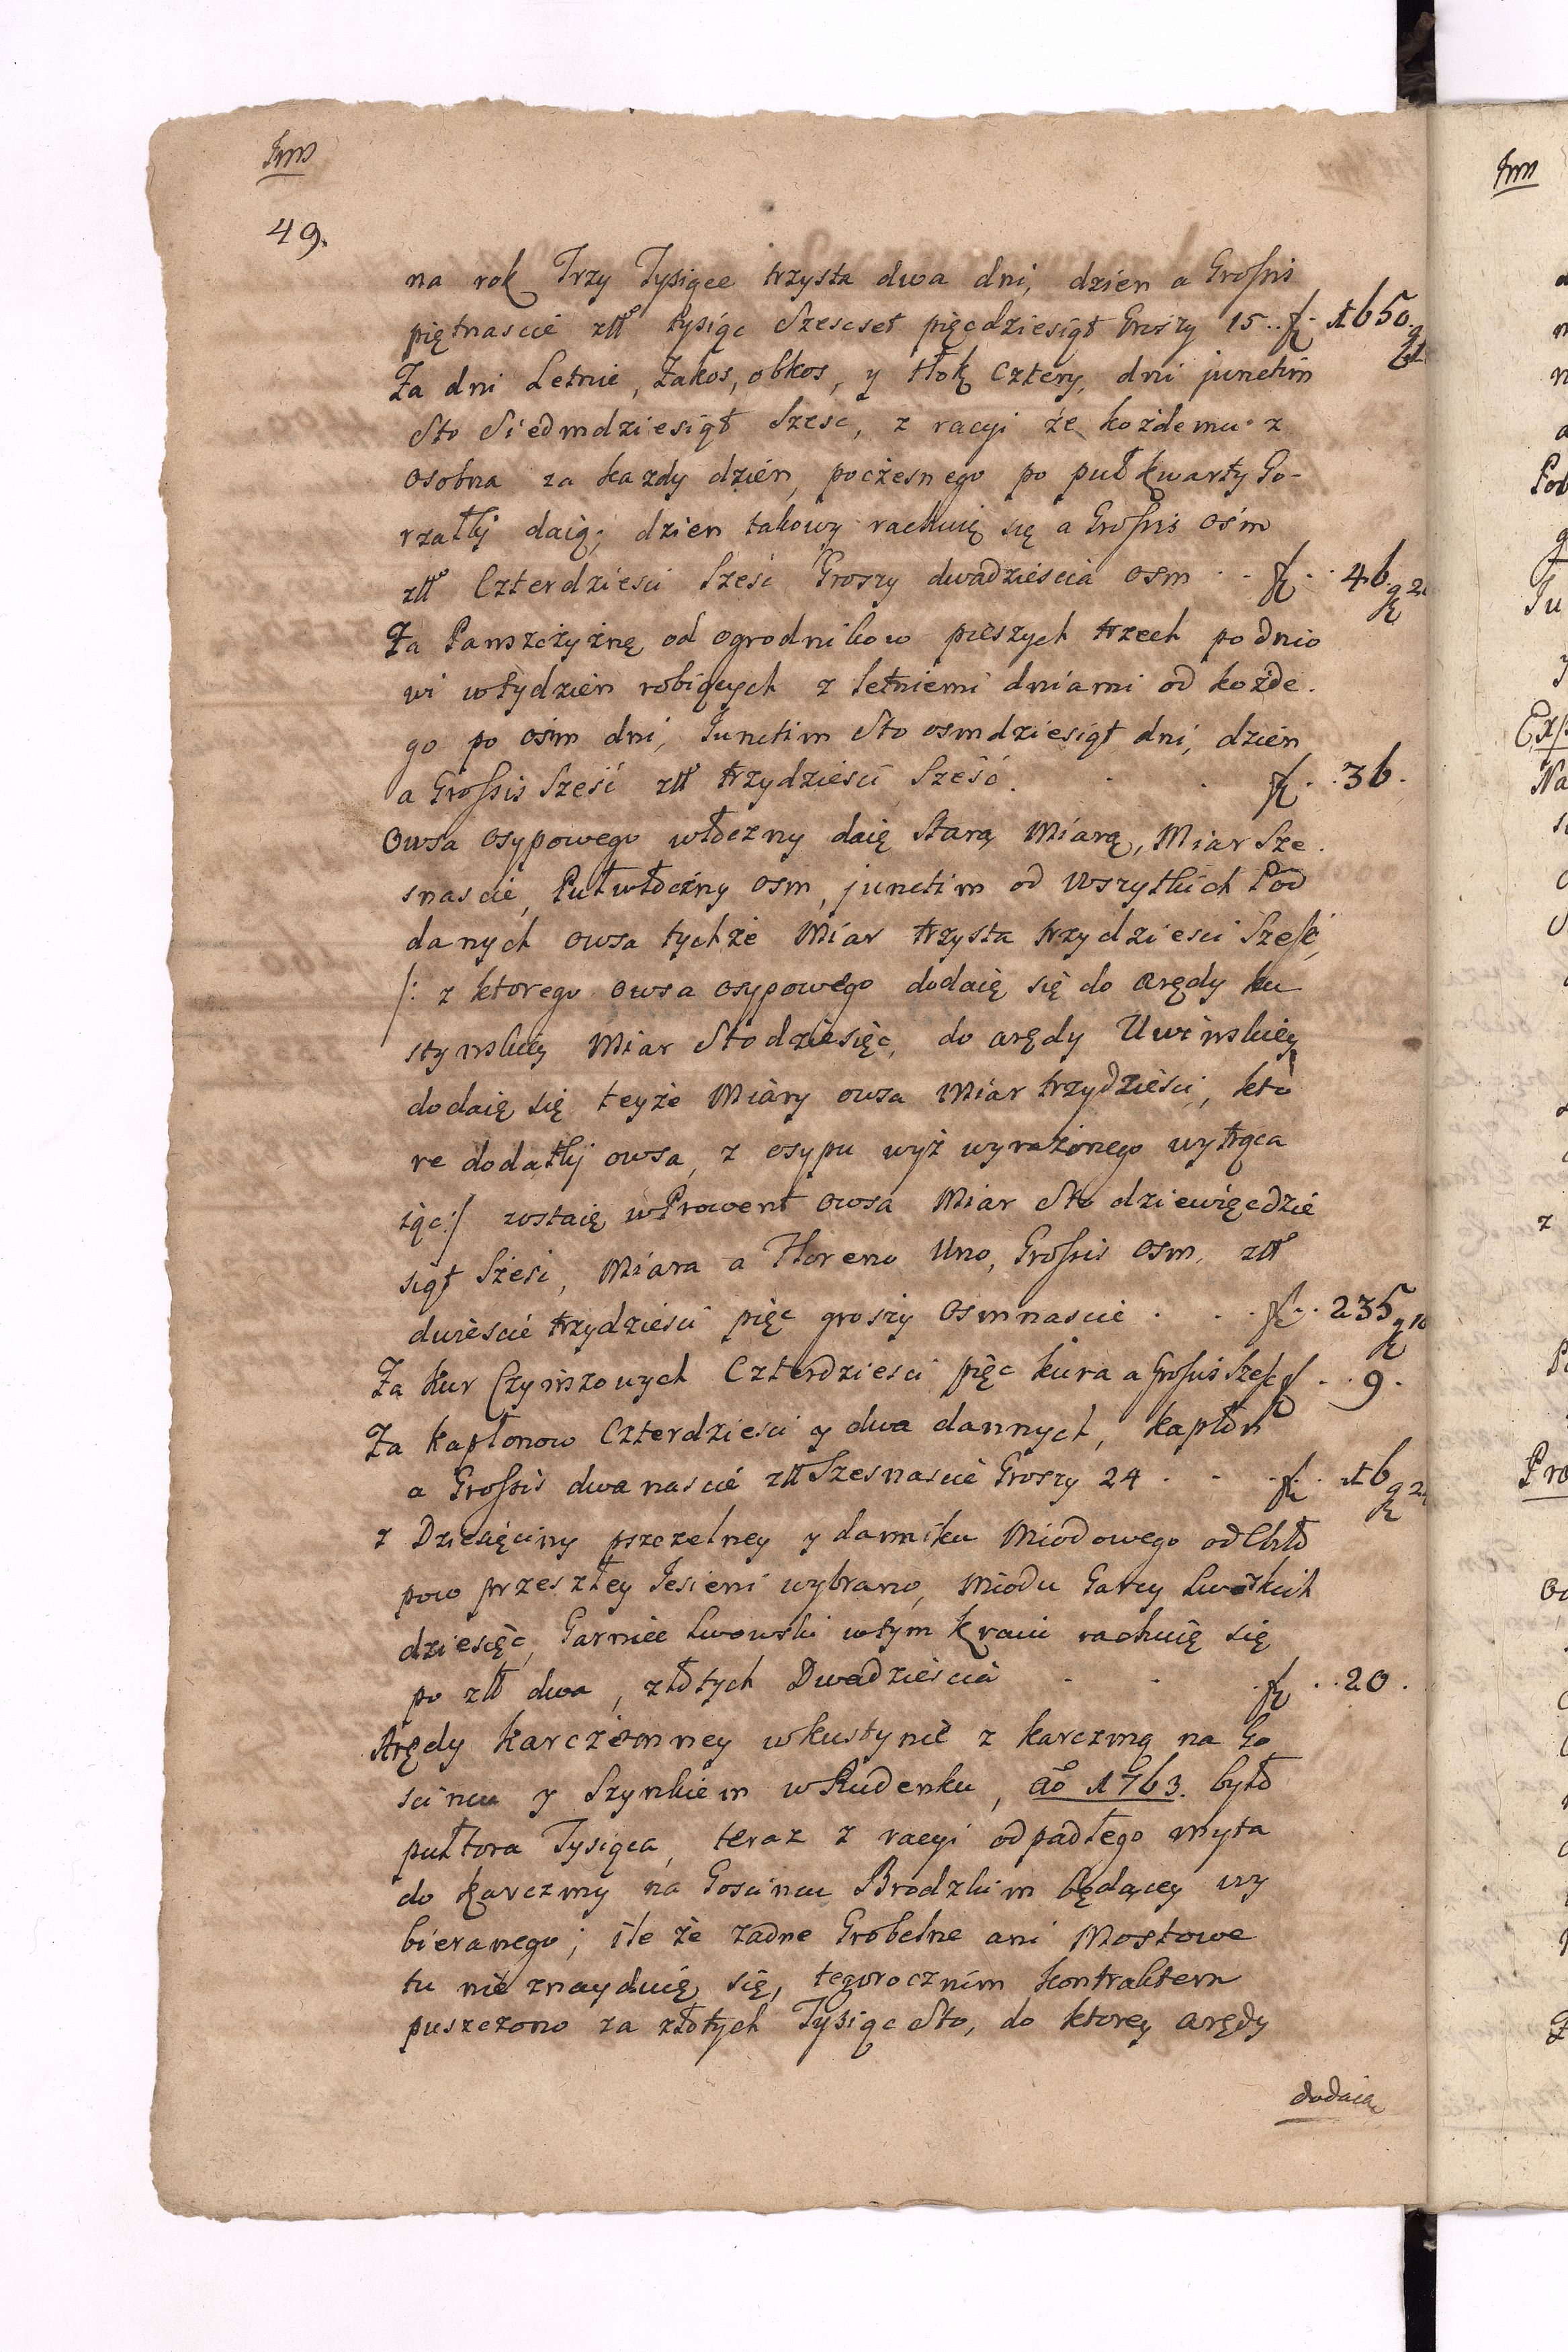 49.
na rok Trzy Tysiące trzysta dwa dni, dzien a Grossis
piętnascie złł tysiąc Szescset pięcdziesiąt Groszy 15 .. fl · 1650.
Za dni Letnie, Zakos, obkos, y tłok cztery, dni junctim
Sto Siedmdziesiąt Szesc, z racyi że każdemu z
osobna za kazdy dzien, poczesnego po puł kwarty Go-
rzałki daią; dzien takowy rachuię się a Grossis ośm
złł Czterdziesci Sześć Groszy dwadzieścia osm · · fl · · 46. g 2
Za Panszczyznę od ogrodnikow pieszych trzech po dnio
wi w tydzien robiących z letniemi dniami od kożde.
go po ośm dni, Junctim Sto osmdziesiąt dni, dzien
a Grossis Sześć złł trzydziesci Sześć. · · fl · · 36.
Owsa osypowego włoczny daię Starą Miarą, Miar Sze.
snascie, Pułwłoczny osm, junctim od Wszytkich Pod
danych owsa tychże Miar trzysta trzydziesci Szesć,
/: z ktorego owsa osypowego dodaię się do arędy ku
stynskiey Miar Sto dziesięc, do arędy Uwinskiey
dodaię się teyże Miary owsa Miar trzydziesci, kto
re dodatki owsa, z osypu wyż wyrażonego wytrąca
iąc :/ zostaię w Prowent owsa Miar Sto dziewięcdzie
siąt Sześć, Miara a Floreno Uno, Grossis osm, złł
dwiescie trzydziesci pięc groszy Osmnascie · · · fl · · 235 g 18
Za Kur Czynszowych Czterdziesci pięc kura a Grossis Szesć fl · · 9 ·
Za Kapłonow Czterdziesci y dwa dannych, kapłon
a Grossis dwanascie złł Szesnascie Groszy 24 · · · fl · 16 g 2
z Dziesięciny pszczelney y danniku Miodowego od Chło
pow przeszłey Jesieni wybrano, Miodu Garcy Lworskich
dziesięc, Garniec Lwowski w tym kraiu rachuię się
po złł dwa, złotych Dwadzieścia · · · fl · · 20 .
Arędy Karczemney w Kustynie z karczmą na Go
scincu y Szynkiem w Rudenku, aō 1763. było
pułtora Tysiąca, teraz z racyi odpadłego myta
do Karczmy na Goscincu Brodzkim będącey wy
bieranego; ile że zadne Grobelne ani Mostowe
tu nie znayduię się, tegorocznim kontraktem
puszczono za złotych Tysiąc Sto, do ktorey arędy
dodaią